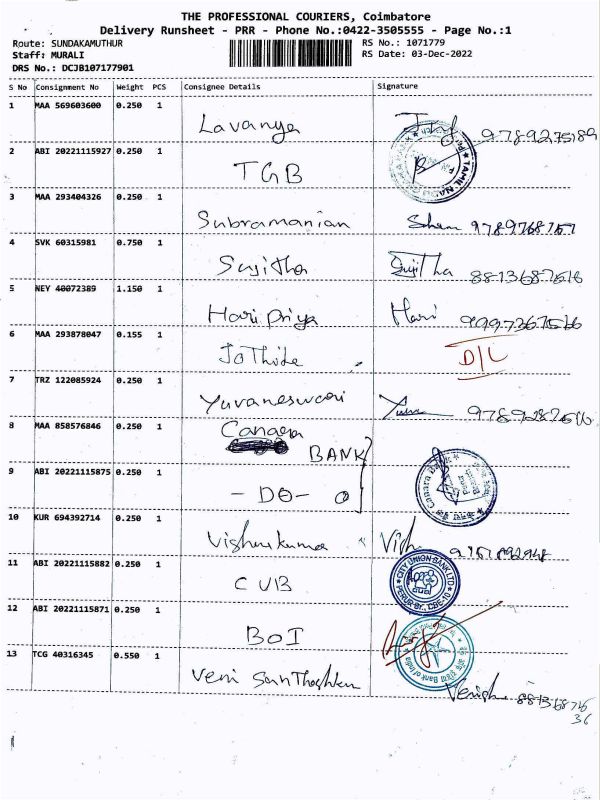 THE PROFESSIONAL COURIERS, Coimbatore
Delivery Runsheet - PRR - Phone No.:0422-3505555 - Page No.:1
Route: SUNDAKAMUTHUR RS No.: 1071779
Staff: MURALI RS Date: 03-Dec-2022
DRS No.: DCJB107177901
S No Consignment No Weight PCS Consignee Details Signature
1 MAA 569603600 0.250 1
Lavanya 9789275189
2 ABI 20221115927 0.250 1
TGB
3 MAA 293404326 0.250 1
Subramanian 9789768767
4 SVK 60315981 0.750 1
Sujitha Sujitha 8813687516
5 NEY 40072389 1.150 1
Hari Priya Hari 9997367516
6 MAA 293878047 0.155 1
D/L
7 TRZ 122085924 0.250 1
Yuvaneswari 9789287516
8 MAA 858576846 0.250 1
Canara
BANK
Canara Bank
9 ABI 20221115875 0.250 1
- DO -
10 KUR 694392714 0.250 1
Vishnukumar Vish
11 ABI 20221115882 0.250 1
CUB
CITY UNION BANK LTD
12 ABI 20221115871 0.250 1
BOI
Bank of India
13 TCG 40316345 0.550 1
Veni
36